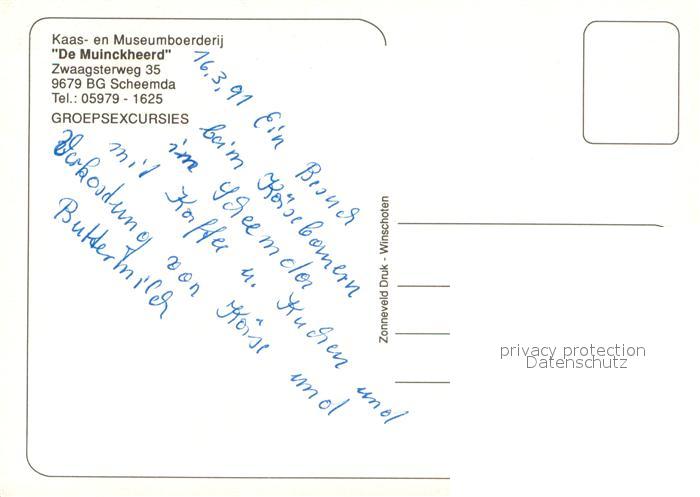 Kaas- en Museumboerderij
"De Muinckheerd"
Zwaagsterweg 35
9679 BG Scheemda
Tel.: 05979 - 1625
GROEPSEXCURSIES
16.3.91 Ein Besuch
beim Käsebauern
im Scheemda
mit Kaffee u. Kuchen und
Verkostung von Käse und
Buttermilch
Zonneveld Druk - Winschoten
privacy protection
Datenschutz